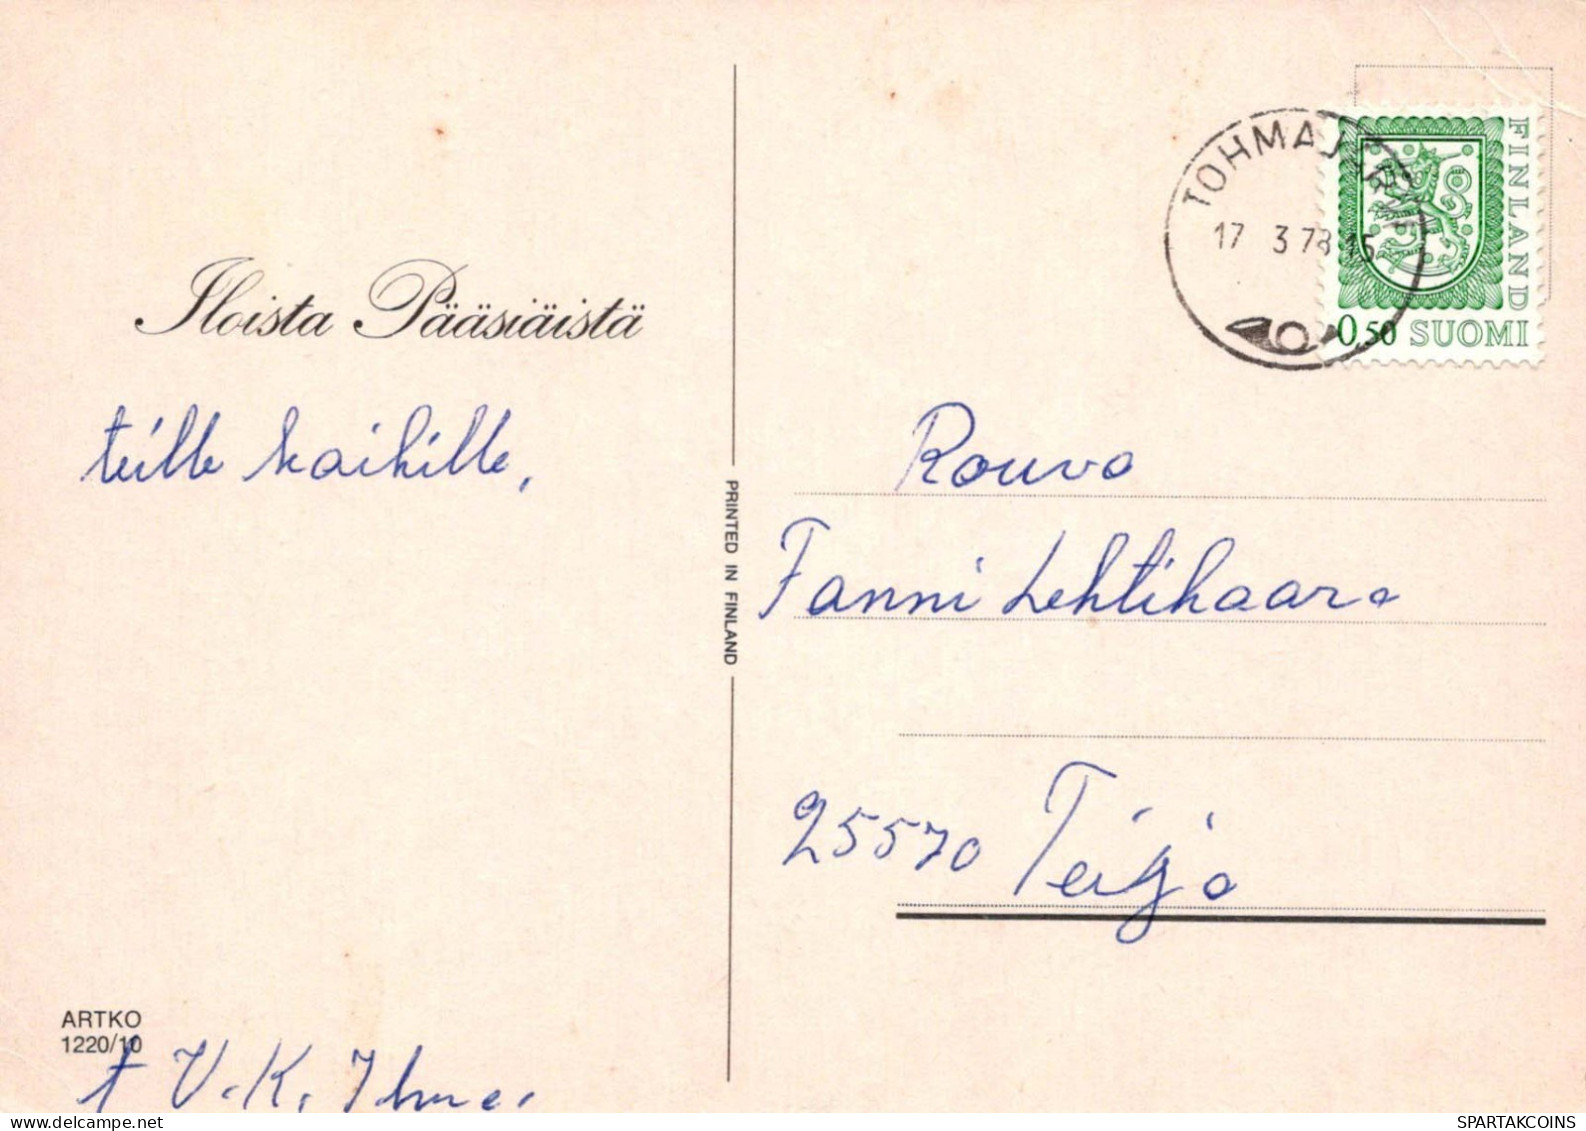 Iloista Pääsiäistä
teille kaikille,
ARTKO
1220/10
t V.K.
PRINTED IN FINLAND
TOHMAJÄRVI
17 3 78 15
FINLAND
0,50 SUOMI
Rouva
Fanni Lehtihaara
25570 Teijo
SPARTAKCOINS